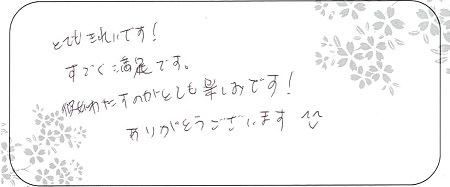 とてもきれいです!
すごく満足です。
わたすのがとても楽しみです!
ありがとうございます ^^